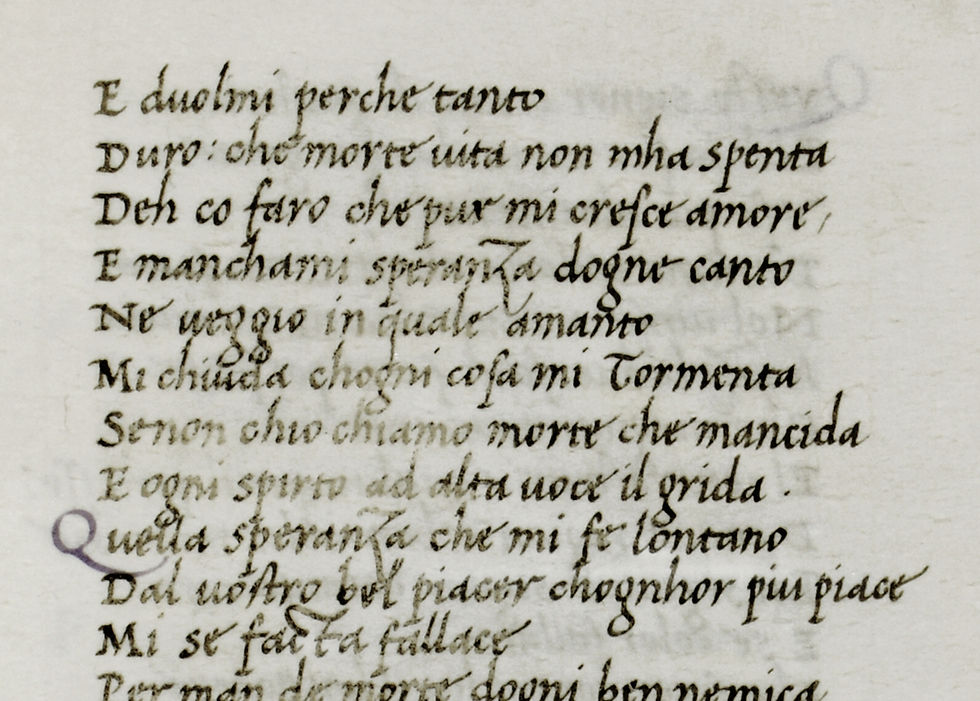 E duolmi perche tanto
Duro: che morte uita non mha spenta
Deh co faro che pur mi cresce amore,
E manchami speranza dogne canto
Ne ueggio in quale amanto
Mi chiuda chogni cosa mi Tormenta
Senon chio chiamo morte che mancida
E ogni spirto ad alta uoce il grida.
Quella speranza che mi fe lontano
Dal uostro bel piacer chognhor piu piace
Mi se facta fallace
Per man de morte dogni ben nemica